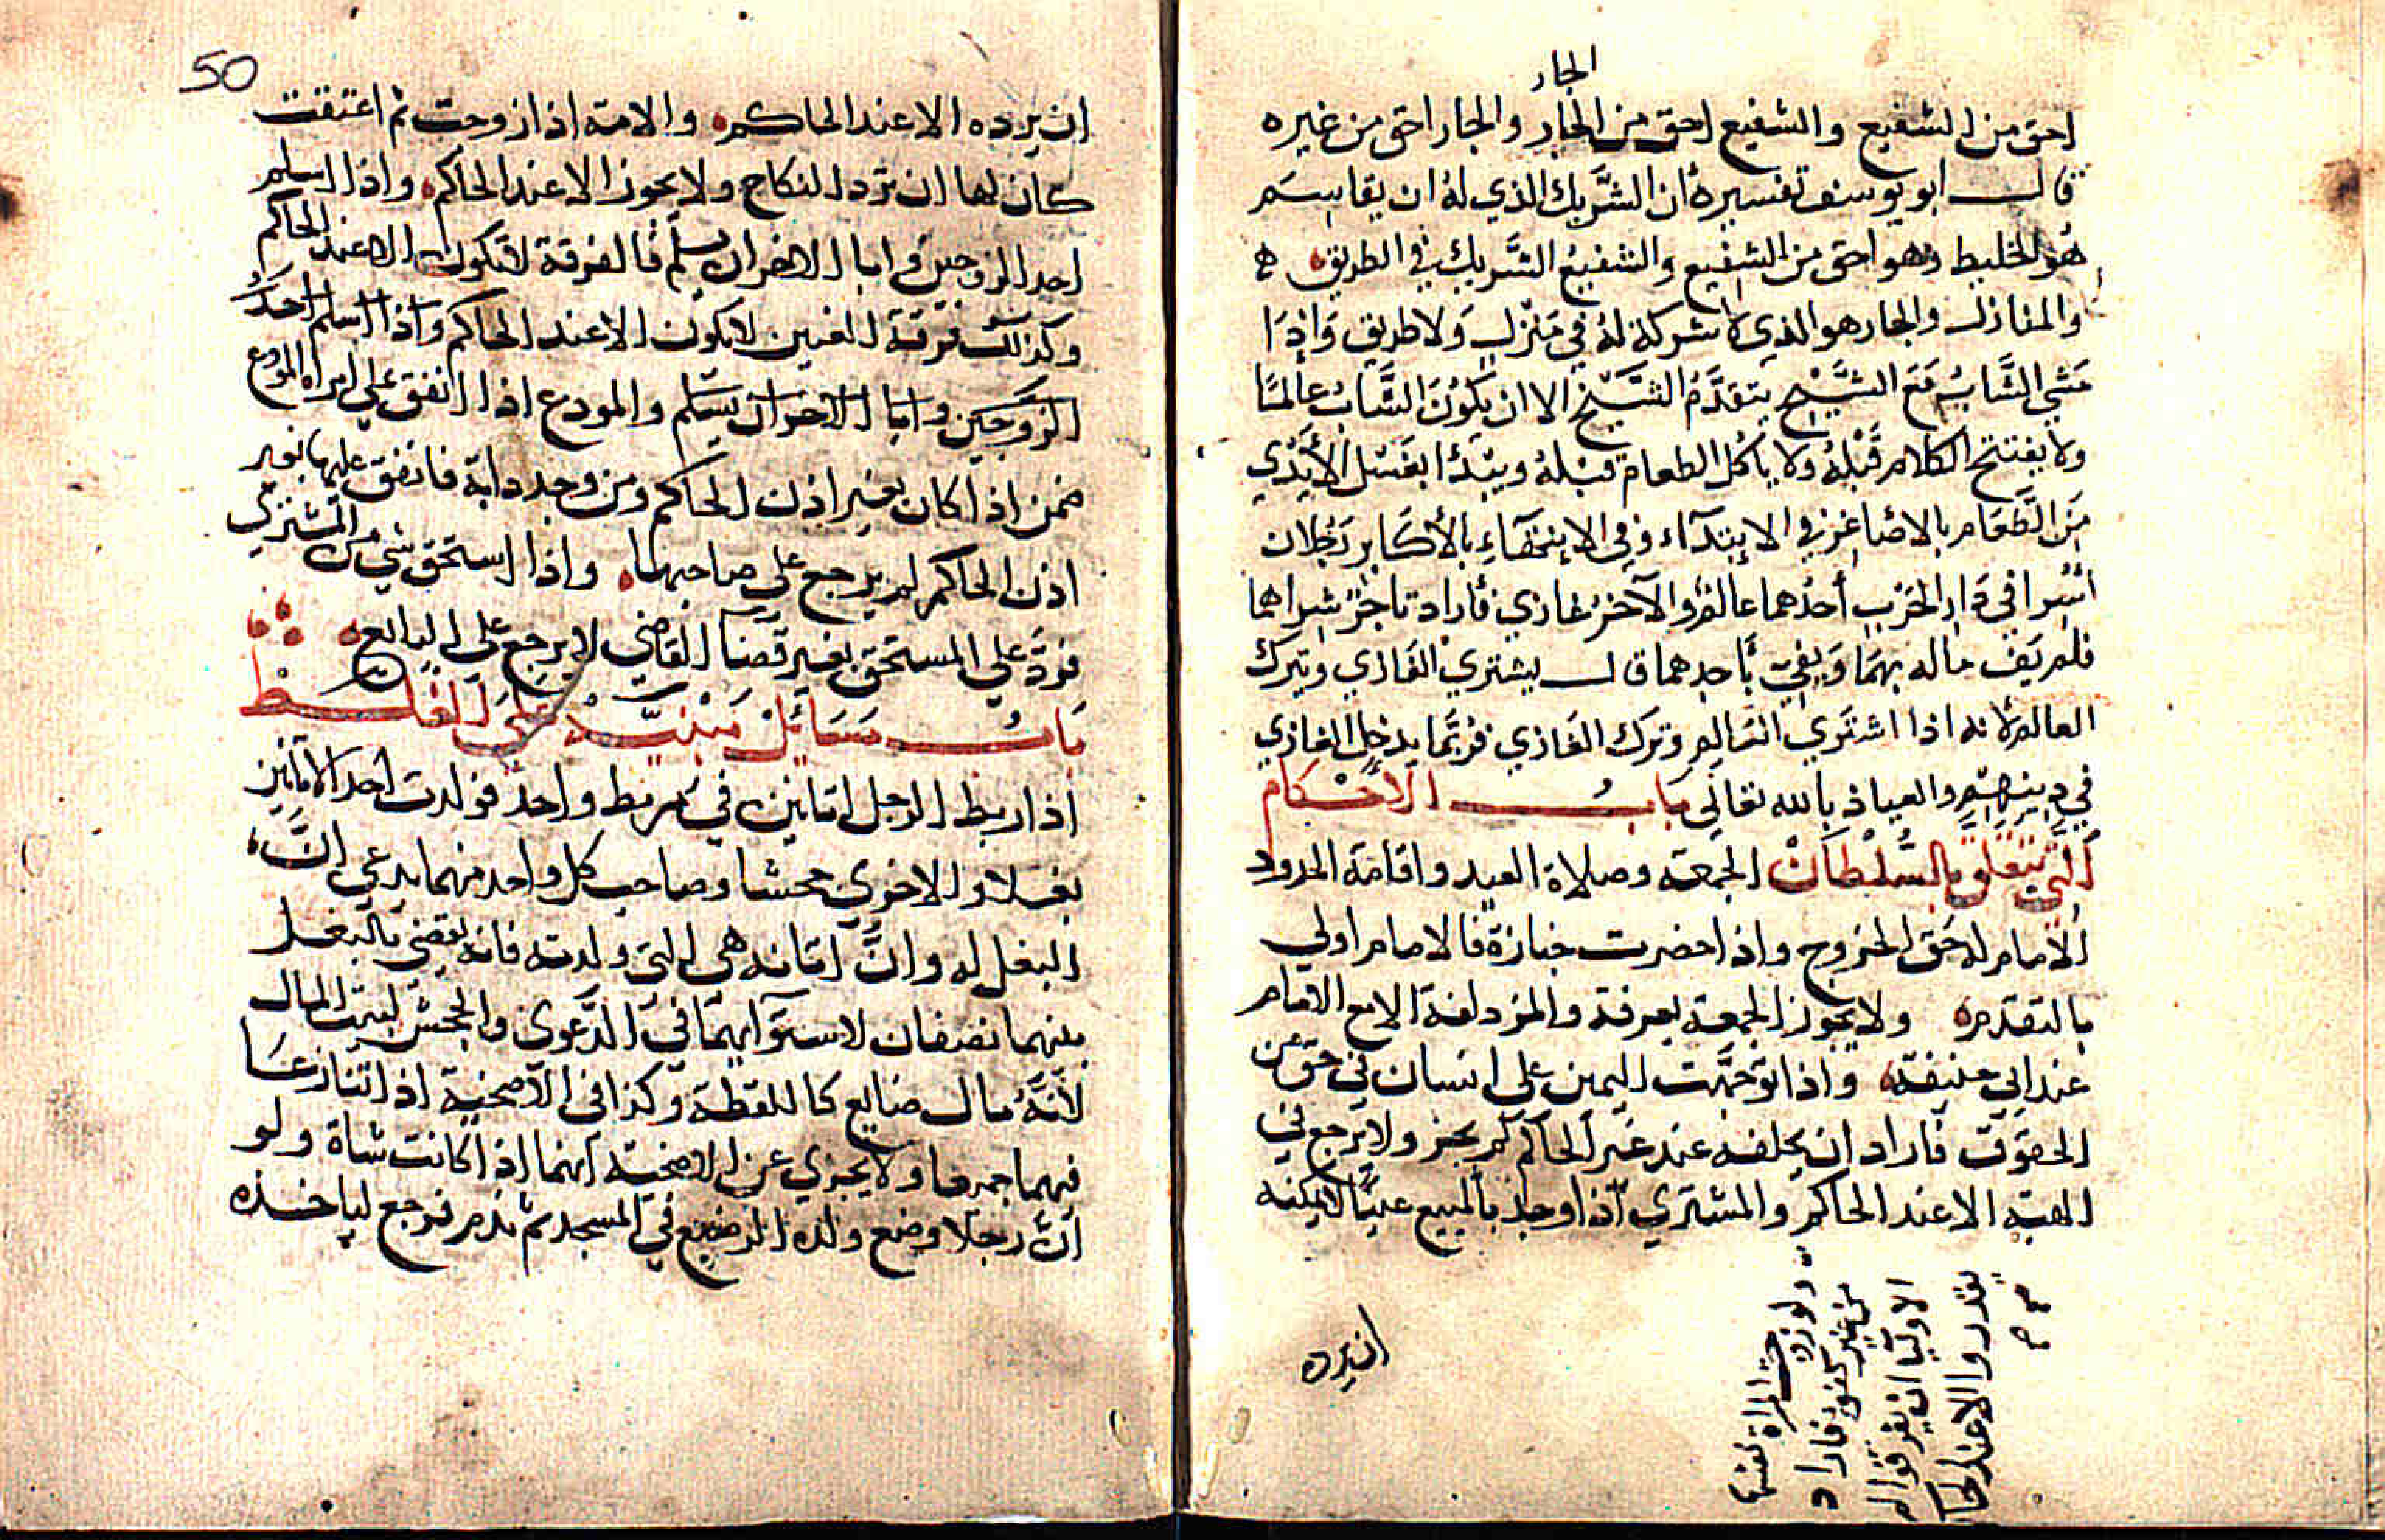 الجار
احق من الشفيع والشفيع احق من الجار والجار احق من غيره
قال ابو يوسف تفسيره أن الشريك الذي له ان يقاسم
هو الخليط وهو احق من الشفيع والشفيع الشريك في الطريق
والمنازل والجار هو الذي لا شركة له في منزل ولا طريق وإذا
مشي الشاب مع الشيخ يتقدم الشيخ الا ان يكون الشاب عالما
ولا يفتتح الكلام قبله ولا ياكل الطعام قبله ويبدأ بغسل الأيدي
من الطعام بالاصاغر في الابتدآء وفي الانتهاء بالأكابر رجلان
أسرا في دار الحرب أحدهما عالم والآخر غازي فأراد تاجر شراهما
فلم يف ماله بهما ويفي بأحدهما قال يشتري الغازي ويترك
العالم لانه اذا اشتري العالم وترك الغازي فربما يدخل الغازي
في دينهم والعياذ بالله تعالى باب الأحكام
التي تتعلق بالسلطان الجمعة وصلاة العيد واقامة الحدود
الامام له حق الخروج واذا حضرت جنازة فالامام اولي
بالتقدم ولا يجوز الجمعة بعرفة والمزدلفة الا مع الامام
عند ابي حنيفة واذا توجهت اليمين علي انسان في حق من
الحقوق فاراد ان يحلفه عند غير الحاكم لم يجز ولا يرجع في
الهبة الا عند الحاكم والمشتري اذا وجد بالمبيع عيبا لا يمكنه
ولو زوجت المراة نفسها
من غير كفو فاراد
الاوليا ان يفرقوا لم
يقدروا الا عند الحا
ان يرده
50
ان يرده الا عند الحاكم والامة اذا زوجت ثم اعتقت
كان لها ان ترد النكاح ولا يجوز الا عند الحاكم واذا اسلم
احد الزوجين و ابا الاخر ان يسلم فالفرقة لا تكون الا عند الحاكم
وكذلك فرقة العنين لا تكون الا عند الحاكم واذا اسلم احد
الزوجين وابا الاخر ان يسلم والمودع اذا انفق علي امراة المودع
ضمن اذا كان بغير اذن الحاكم ومن وجد دابة فانفق عليها بغير
اذن الحاكم لم يرجع علي صاحبها واذا استحق شي من المشتري
فرد علي المستحق بغير قضا القاضي لا يرجع علي البايع
باب مسائل مبنية على الغلط
اذا ربط الرجل اتانين في مربط واحد فولدت احد الاتانين
بغلا والاخري جحشا وصاحب كل واحد منهما يدعي ان
البغل له وان اتانه هي التي ولدته فانه يقضي بالبغل
بينهما نصفان لاستوآيهما في الدعوى والجحش لبيت المال
لانه مال ضايع كاللقطة وكذا في الاضحية اذا تنازعا
فيهما جميعا ولا يجزي عن الاضحية انهما اذا كانت شاة ولو
ان رجلا وضع ولده الرضيع في المسجد ثم ندم فرجع لياخذه